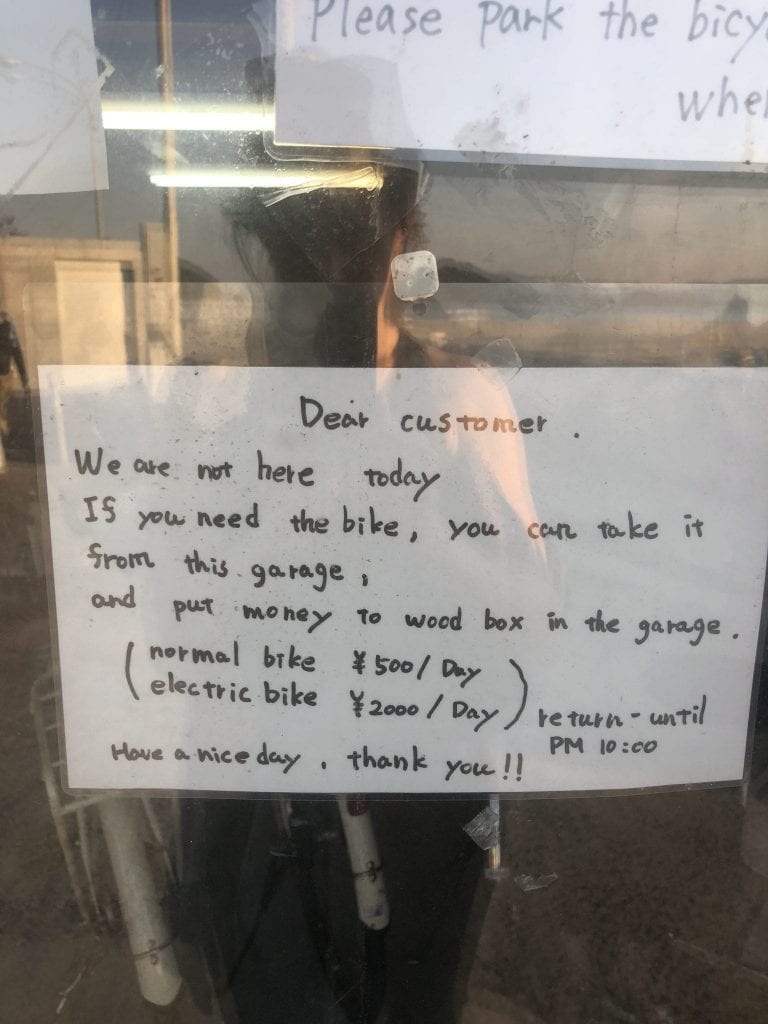 Please park the
Dear customer.
We are not here today
If you need the bike, you can take it
from this garage,
and put money to wood box in the garage.
(normal bike ¥500/Day
electric bike ¥2000/Day) return-until
PM 10:00
Have a nice day. thank you!!